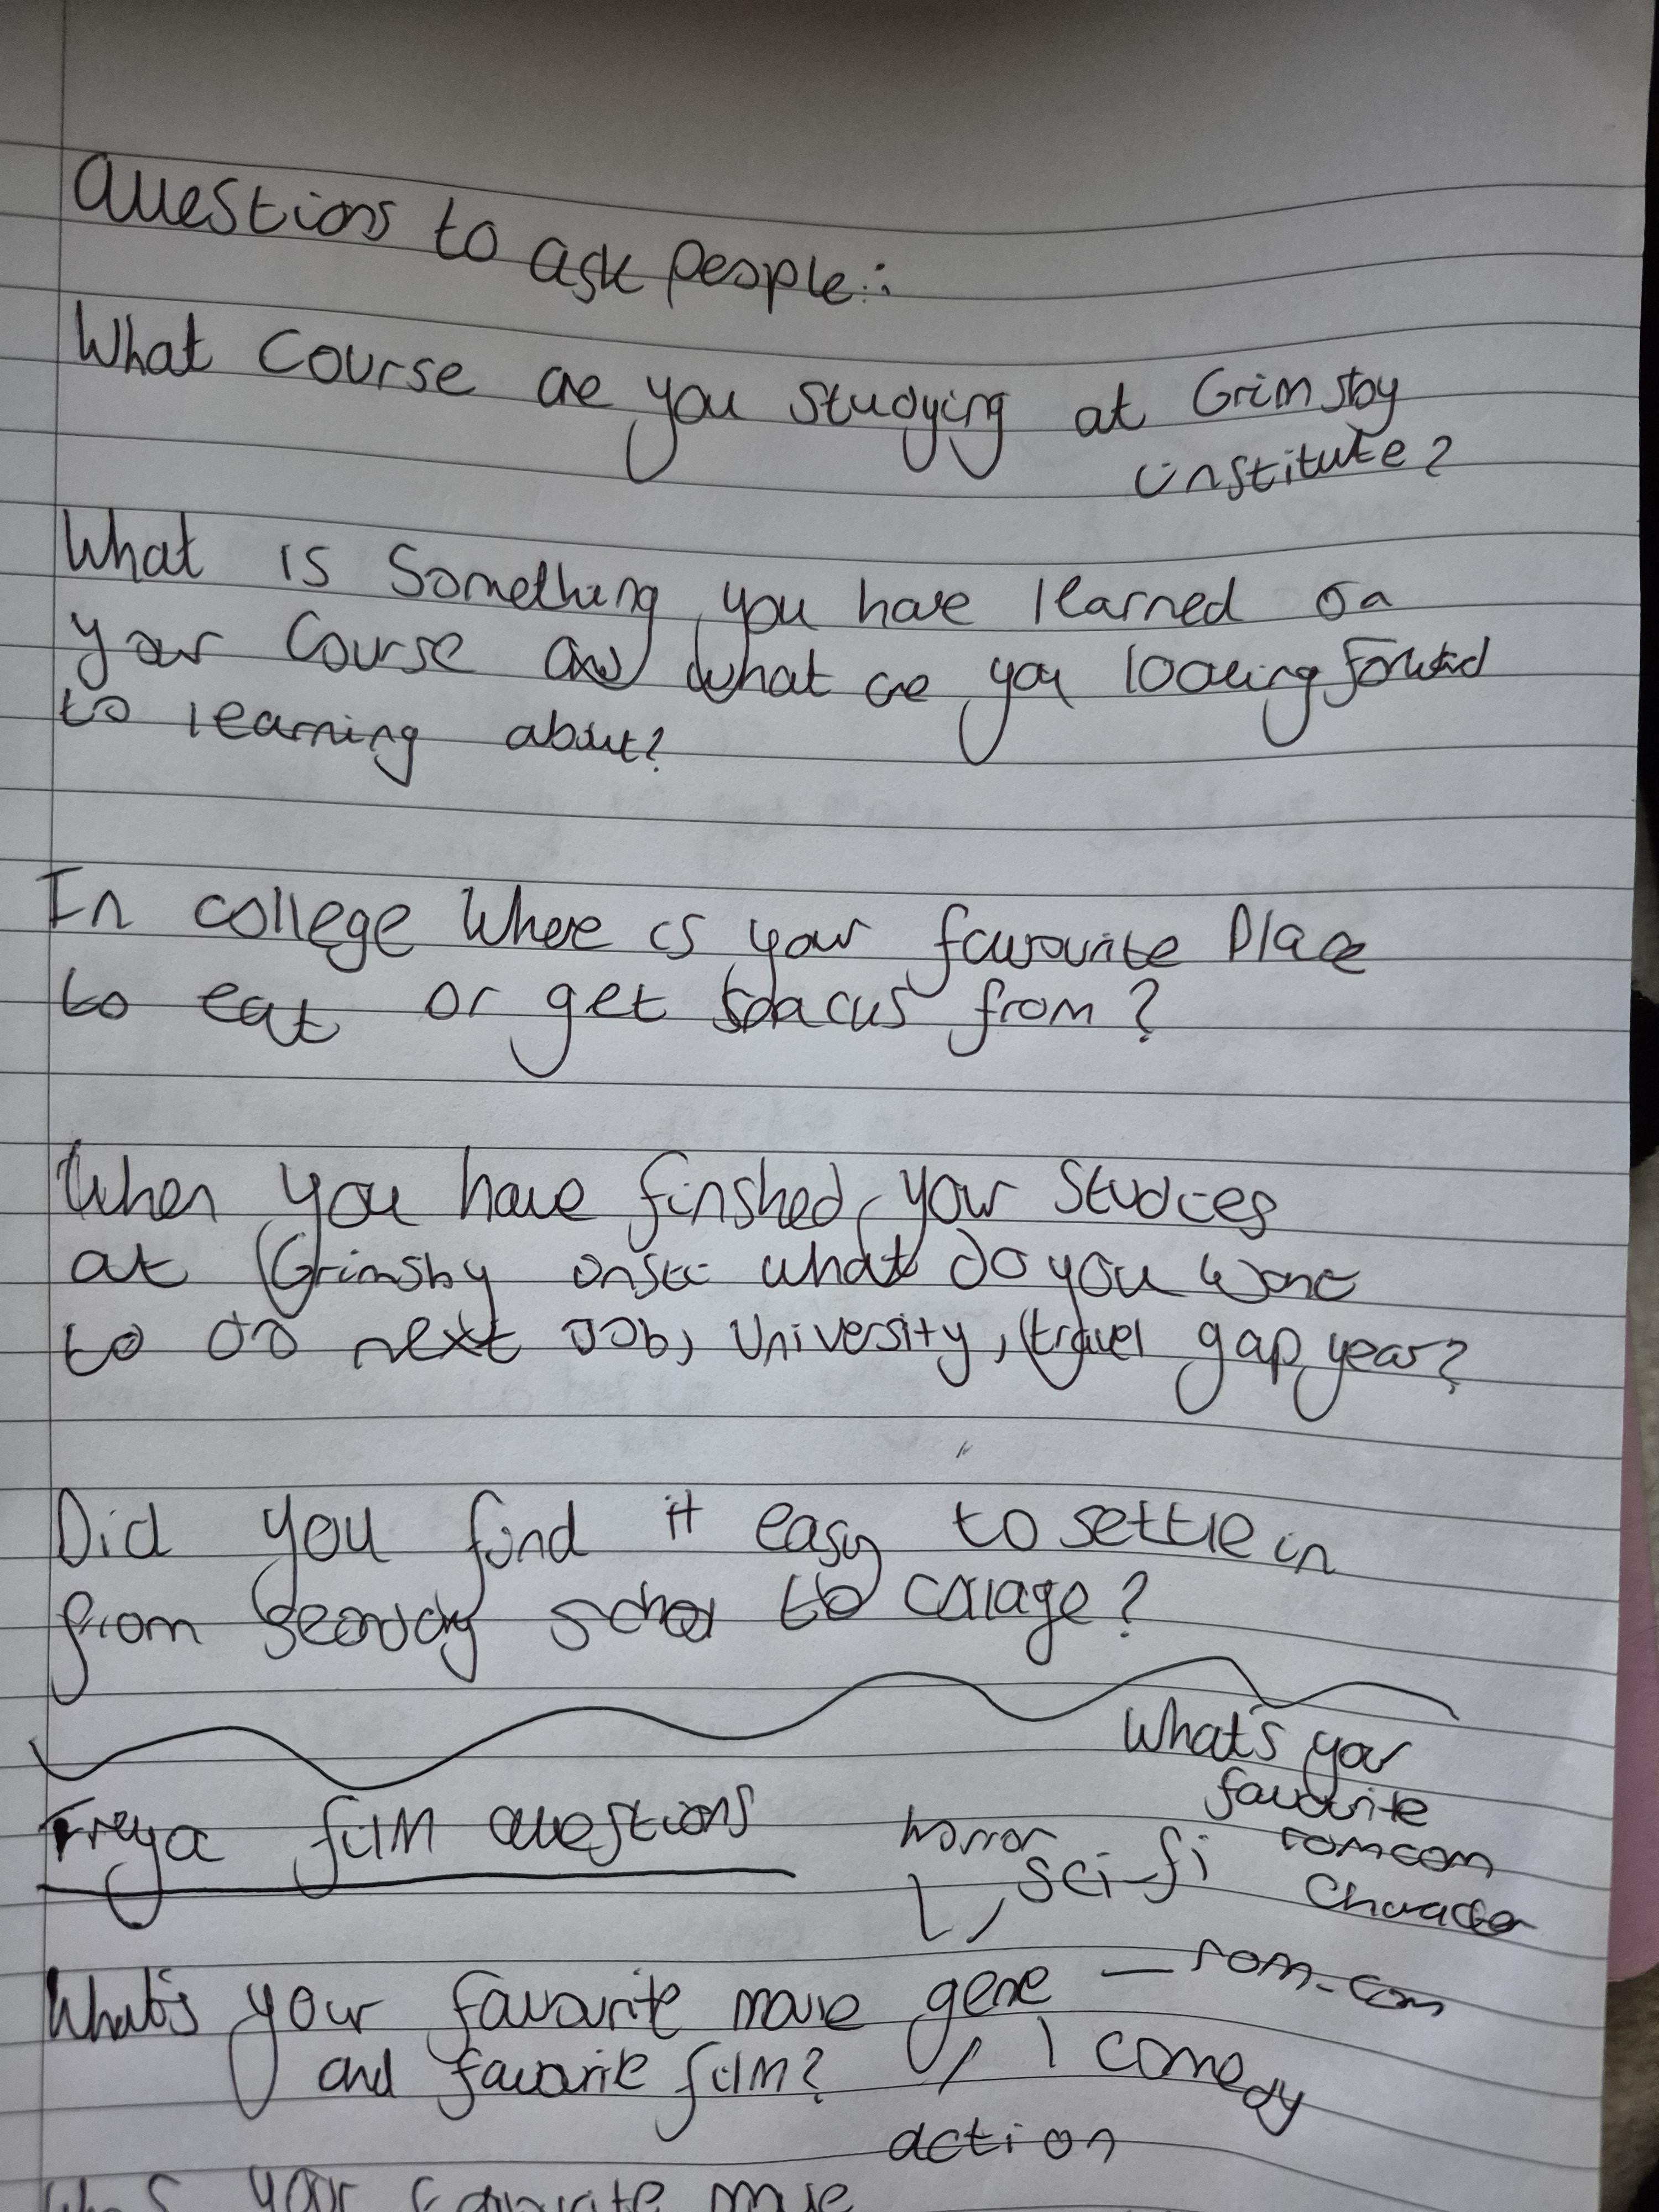 Questions to ask people:
What Course are you Studying at Grimsby
institute?
What is Something you have learned on
your Course and what are you looking forward
to learning about?
In college Where is your favourite Place
to eat or get from?
When you have finshed your Studies
at Grimsby what do you want
to do next Job, University, travel gap year?
Did you find it easy to settle in
from school to collage?
What's your
favourite
romcom
Character
Freya film questions
horror
sci-fi
What's your favourite movie genre — rom-com
and favourite film?
comedy
action
your favourite movie